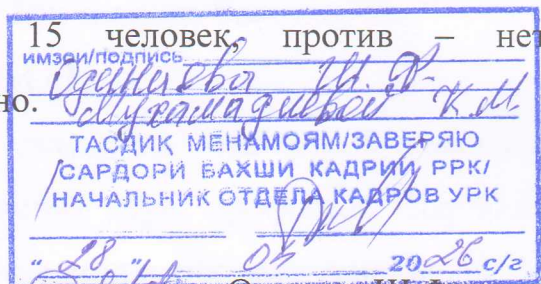 15 человек, против – нет
имзои/подпись
Одинаева Ш. Ф.
но. Мухамадиевой К. М.
ТАСДИҚ МЕНАМОЯМ/ЗАВЕРЯЮ
САРДОРИ БАХШИ КАДРИИ РРК/
НАЧАЛЬНИК ОТДЕЛА КАДРОВ УРК
"28" 04 2026 с/г